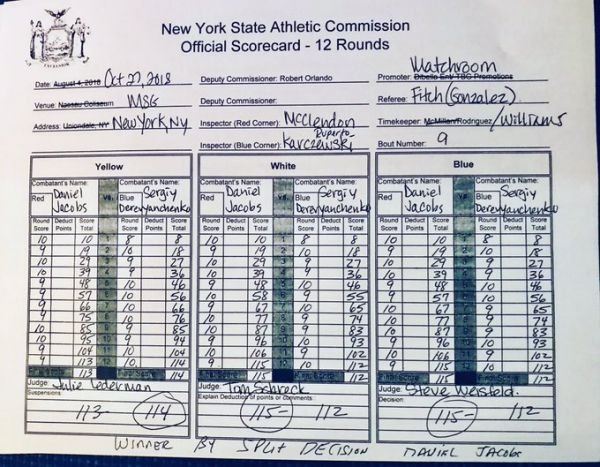 New York State Athletic Commission
Official Scorecard - 12 Rounds
Date: August 4, 2018 Oct 27, 2018 Deputy Commissioner: Robert Orlando Promoter: Dibella Ent/TBC Promotions Matchroom
Venue: Nassau Coliseum MSG Deputy Commissioner: Referee: Fitch (Gonzalez)
Address: Uniondale, NY New York, NY Inspector (Red Corner): McClendon Timekeeper: McMillan/Rodriguez / Williams
Inspector (Blue Corner): Karczewski Bout Number: 9
Yellow White Blue
Combatant's Name: vs. Combatant's Name: Combatant's Name: vs. Combatant's Name: Combatant's Name: vs. Combatant's Name:
Red Daniel Jacobs Blue Sergiy Derevyanchenko Red Daniel Jacobs Blue Sergiy Derevyanchenko Red Daniel Jacobs Blue Sergiy Derevyanchenko
Round Score Deduct Points Score Total Round Score Deduct Points Score Total Round Score Deduct Points Score Total Round Score Deduct Points Score Total Round Score Deduct Points Score Total Round Score Deduct Points Score Total
10 10 1 8 8 10 10 1 8 8 10 10 1 8 8
9 19 2 10 18 9 19 2 10 18 9 19 2 10 18
10 29 3 9 27 10 29 3 9 27 10 29 3 9 27
10 39 4 9 36 10 39 4 9 36 10 39 4 9 36
9 48 5 10 46 9 48 5 10 46 9 48 5 10 46
9 57 6 10 56 10 58 6 9 55 9 57 6 10 56
9 66 7 10 66 9 67 7 10 65 10 67 7 9 65
9 75 8 10 76 10 77 8 9 74 10 77 8 9 74
10 85 9 9 85 10 87 9 9 83 10 87 9 9 83
10 95 10 9 94 9 96 10 10 93 9 96 10 10 93
9 104 11 10 104 10 106 11 9 102 10 106 11 9 102
9 113 12 10 114 9 115 12 10 112 9 115 12 10 112
Final Score 113 Final Score 114 Final Score 115 Final Score 112 Final Score 115 Final Score 112
Judge: Julie Lederman Judge: Tom Schreck Judge: Steve Weisfeld
Suspensions: Explain Deduction of points or comments: Decision:
113- 114 115- 112 115- 112
WINNER BY SPLIT DECISION DANIEL JACOBS